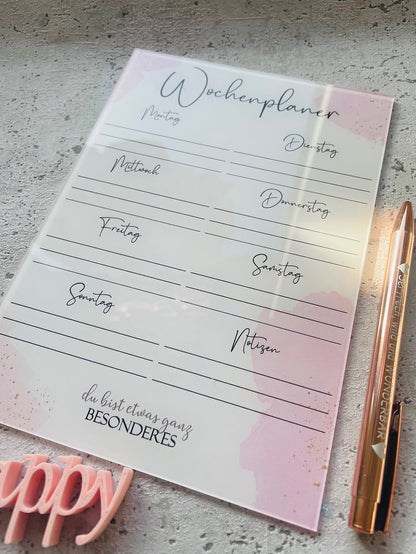 Wochenplaner
Montag
Dienstag
Mittwoch
Donnerstag
Freitag
Samstag
Sonntag
Notizen
du bist etwas ganz
BESONDERES
wild und WUNDERBAR
appy